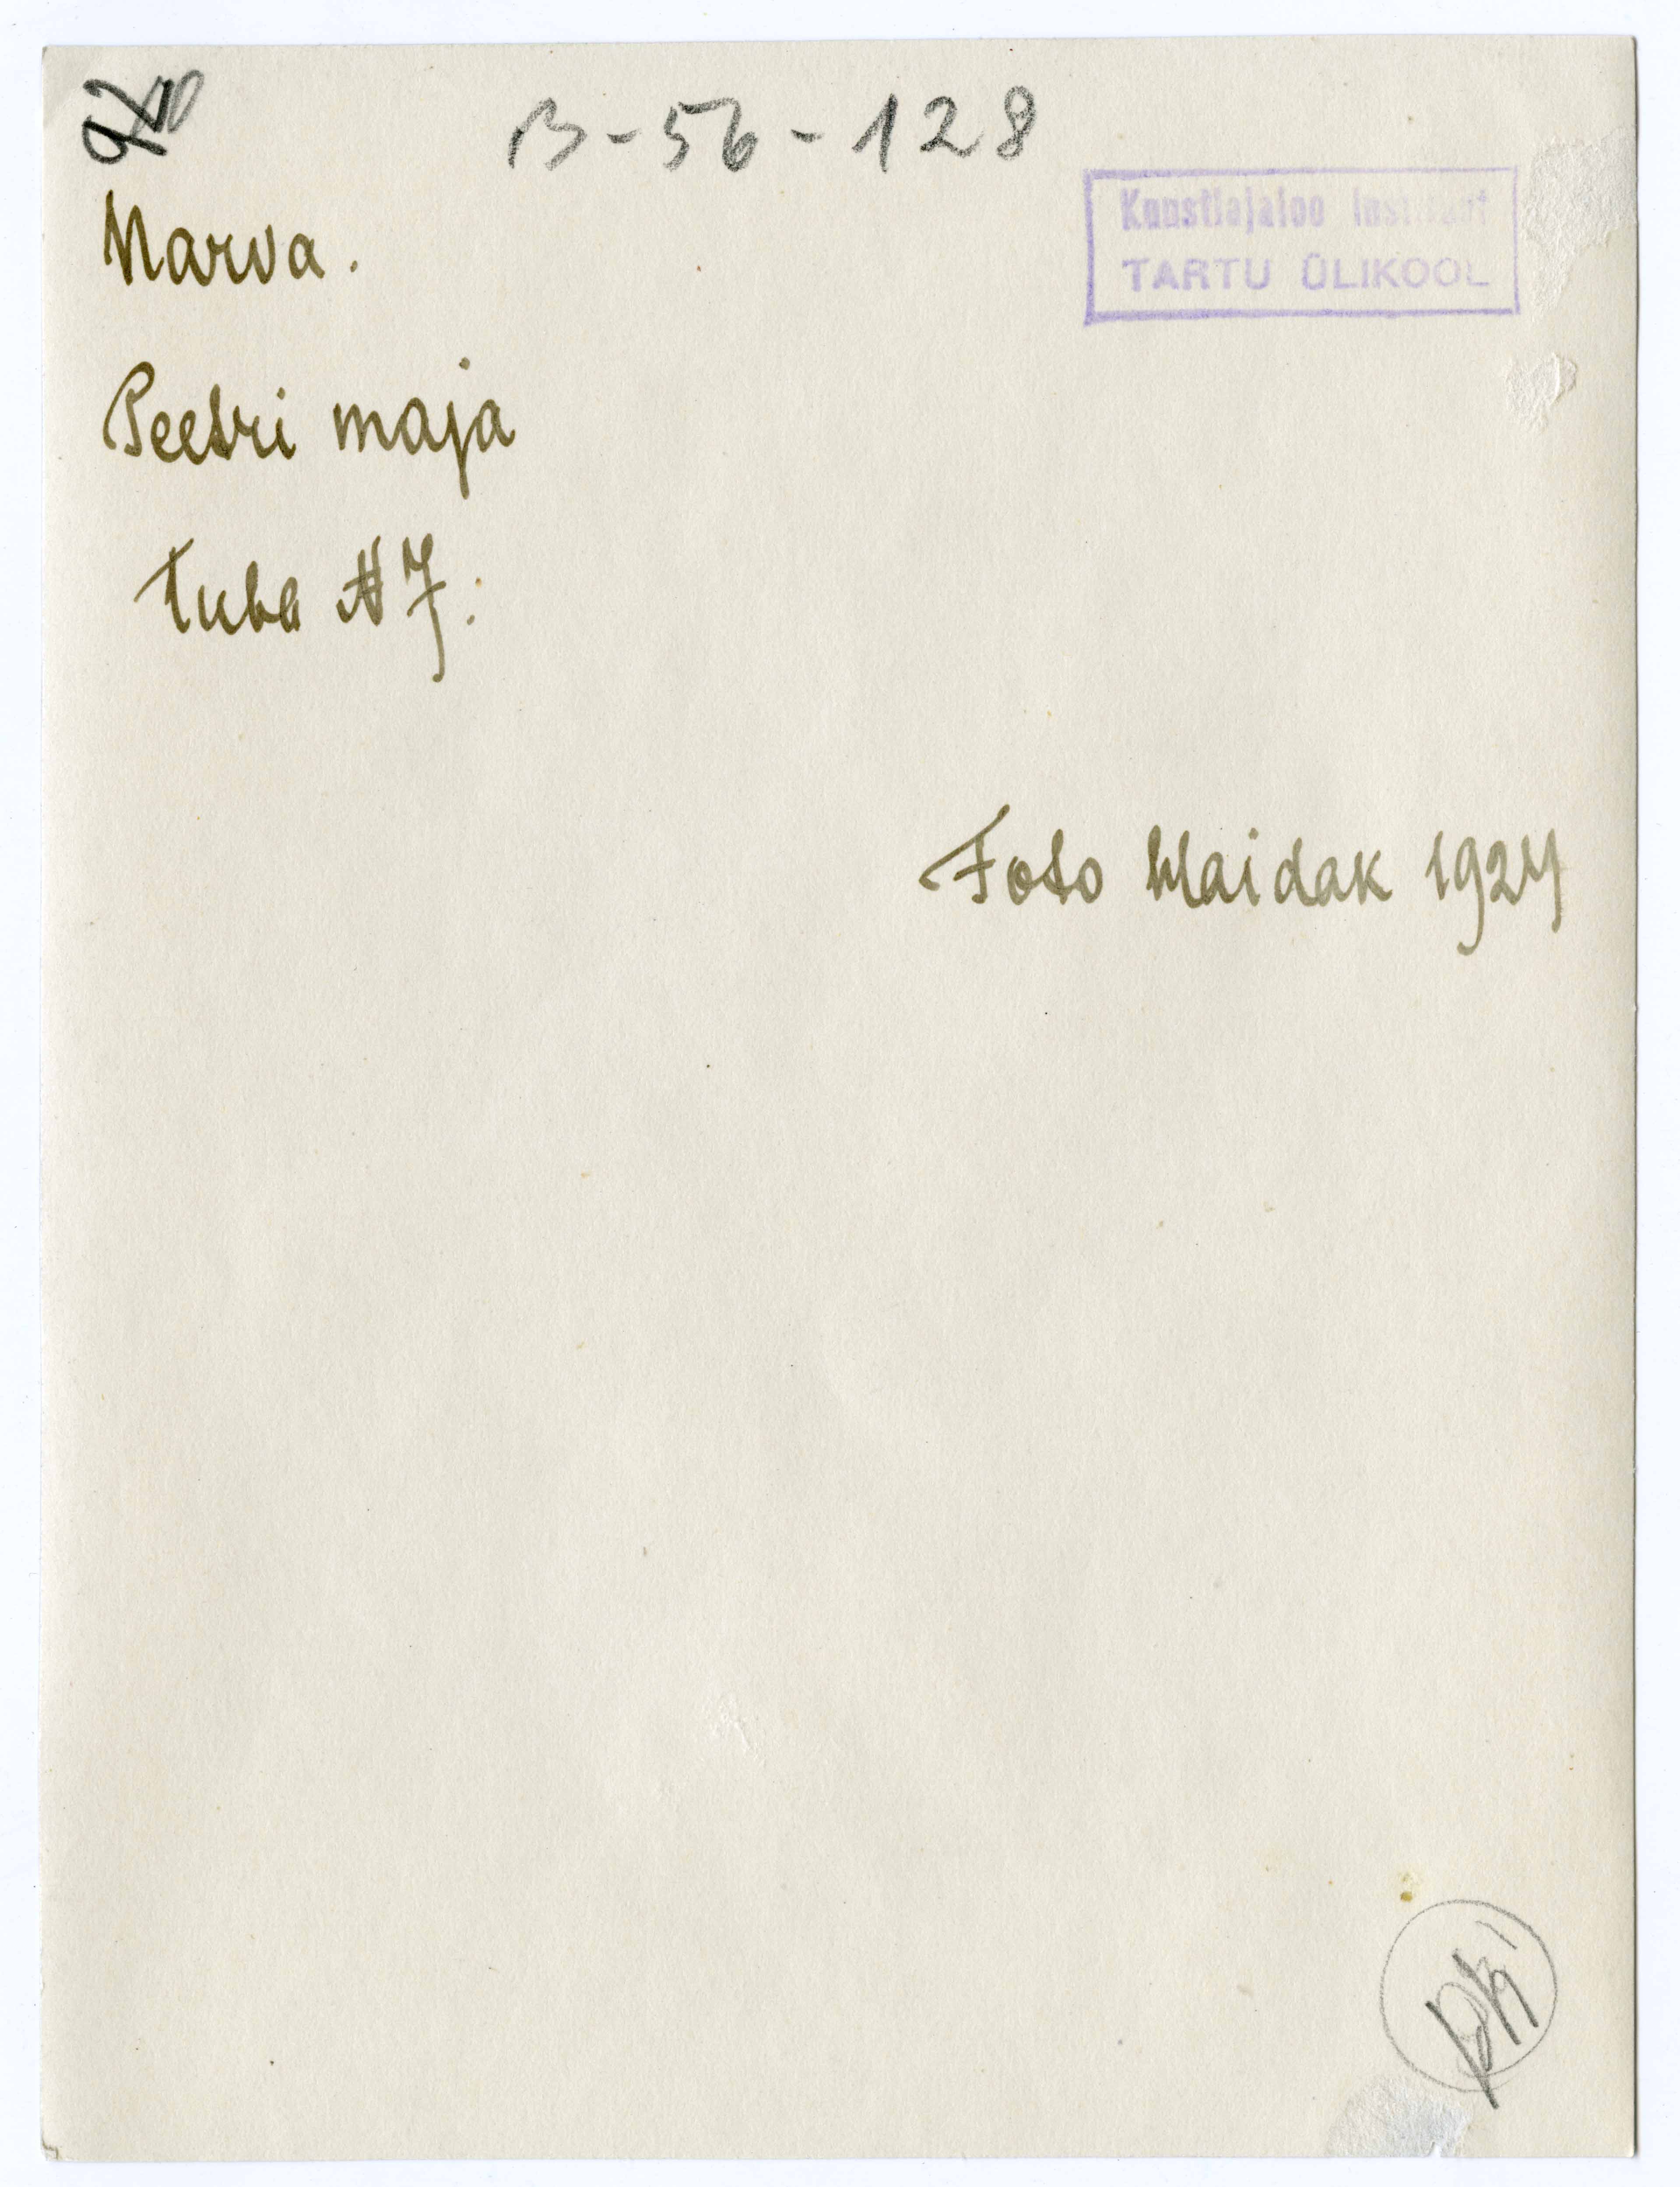 B-56-128
Kunstiajaloo Instituut
TARTU ÜLIKOOL
Narva.
Peetri maja
Tuba № 7.
Foto Maidak 1924